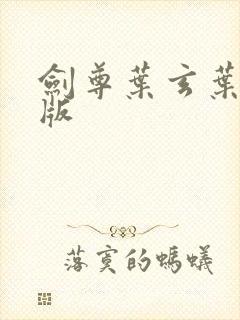 劍尊葉玄葉
版
落寞的螞蟻